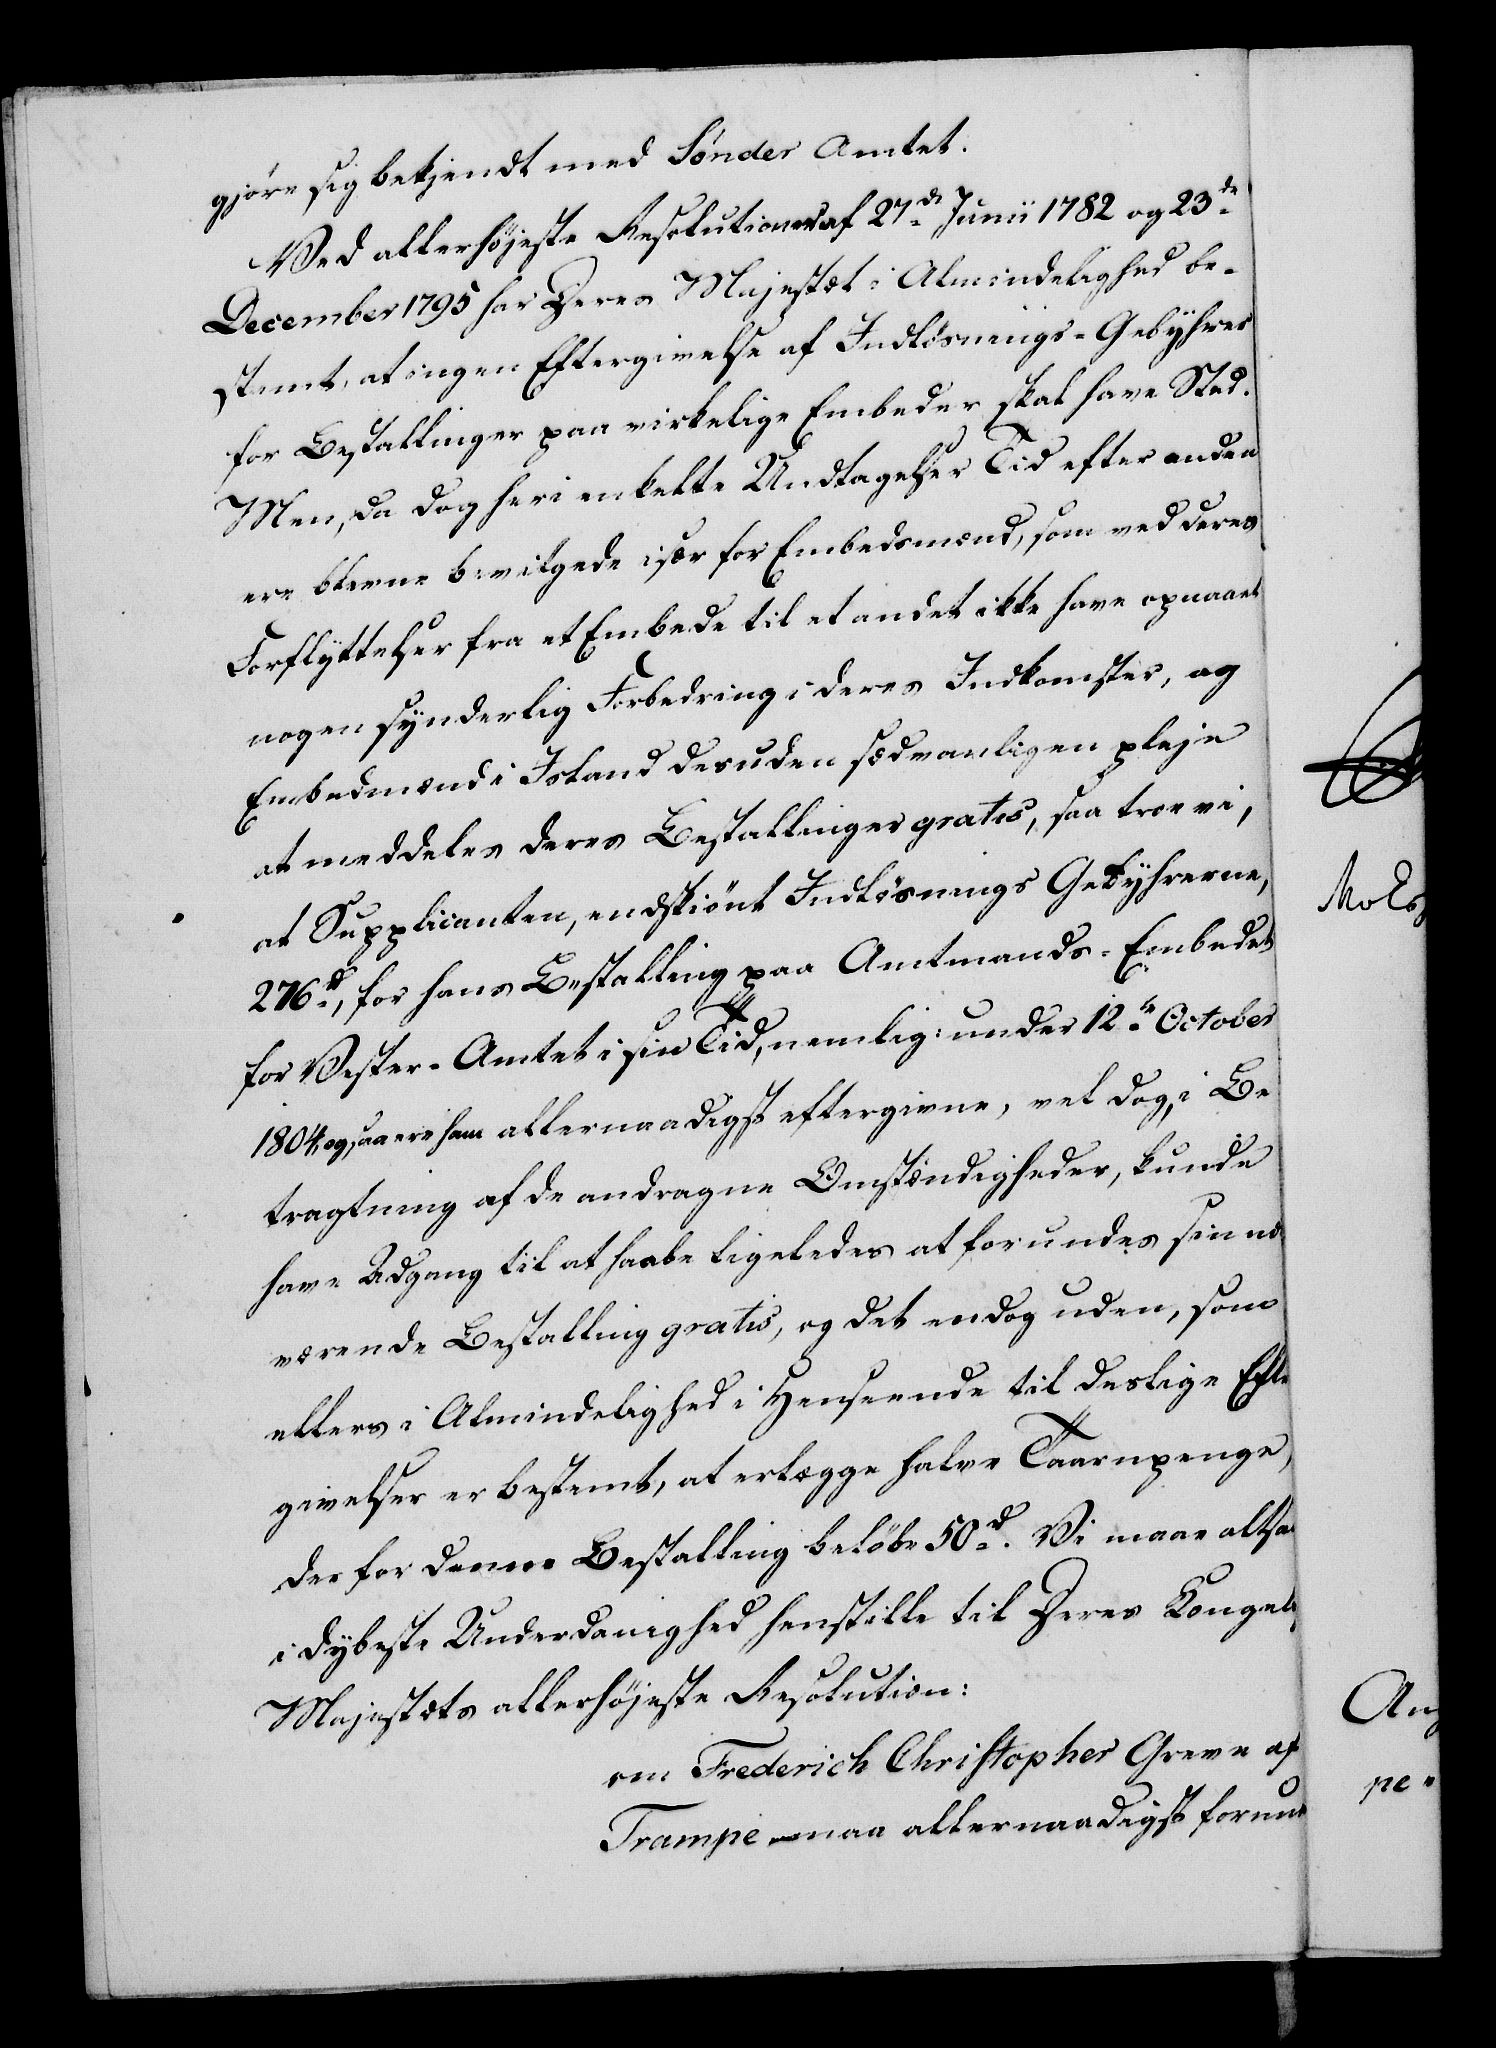 gjøre sig bekjendt med Sönder Amtet.
Ved allerhöjeste Resolutioner af 27de Junii 1782 og 23de
December 1795 har Deres Majestæt i Almindelighed be-
stemt, at ingen Eftergivelse af Indlösnings-Gebyhrer
for Bestallinger paa virkelige Embeder skal have Sted.
Men, da dog heri enkelte Undtagelser Tid efter anden
ere blevne bevilgede især for Embedsmænd, som ved deres
Forflyttelser fra et Embede til et andet ikke have opnaaet
nogen synderlig Forbedring i deres Indkomster, og
Embedmænd i Island desuden sædvanligen pleje
at meddeles deres Bestallinger gratis, saa troe vi,
at Supplicanten, endskiönt Indlösnings Gebyhrerne,
276 rd, for hans Bestalling paa Amtmands-Embedet
for Vester-Amtet i sin Tid, nemlig: under 12te October
1804, ogsaa ere ham allernaadigst eftergivne, vel dog, i Be
tragtning af de andragne Omstændigheder, kunde
have Adgang til at haabe ligeledes at forundes sin nu
værende Bestalling gratis, og det endog uden, som
ellers i Almindelighed i Henseende til deslige Efter
givelser er bestemt, at erlægge halve Taarnpenge,
der for denne Bestalling beløbe 50 rd. Vi maae altsaa
i dybeste Underdanighed henstille til Deres Kongel
Majestæts allerhöjeste Resolution:
om Frederich Christopher Greve af
Trampe maa allernaadigst forun
Ang
pe